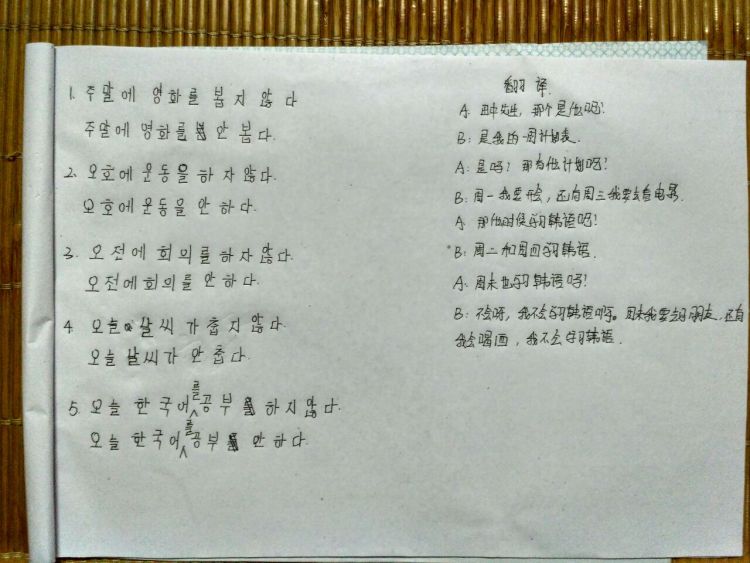 1. 주말에 영화를 봅지 않다
주말에 영화를 안 봅다.
2. 오호에 운동을 하지않다.
오호에 운동을 안 하다.
3. 오전에 회의를 하지않다.
오전에 회의를 안하다.
4. 오늘 날씨가 춥지 않다.
오늘 날씨가 안 춥다.
5. 오늘 한국어를 공부 하지않다.
오늘 한국어를 공부 안 하다.
翻译.
A. 田中先生, 那个是什么呢?
B: 是我的一周计划表.
A: 是吗? 那有什么计划呢?
B: 周一我要开会, 还有周三我要去看电影.
A. 那什么时候学习韩语呢?
B: 周二和周四学习韩语.
A: 周末也学习韩语吗?
B: 不会呀, 我不会学习韩语啊。周末我要去见朋友. 还有
我会唱画, 我不会学习韩语.